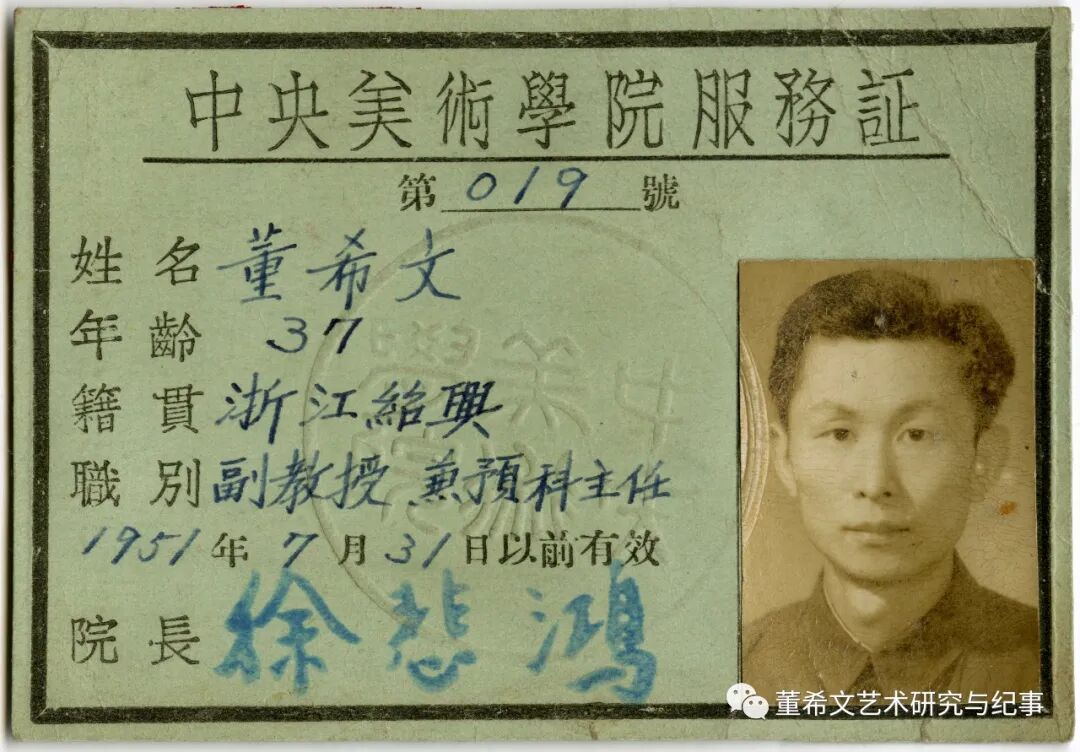 中央美術學院服務証
第 019 號
姓名 董希文
年齡 37
籍貫 浙江紹興
職別 副教授 兼預科主任
1951年7月31日以前有效
院長 徐悲鴻
董希文艺术研究与纪事